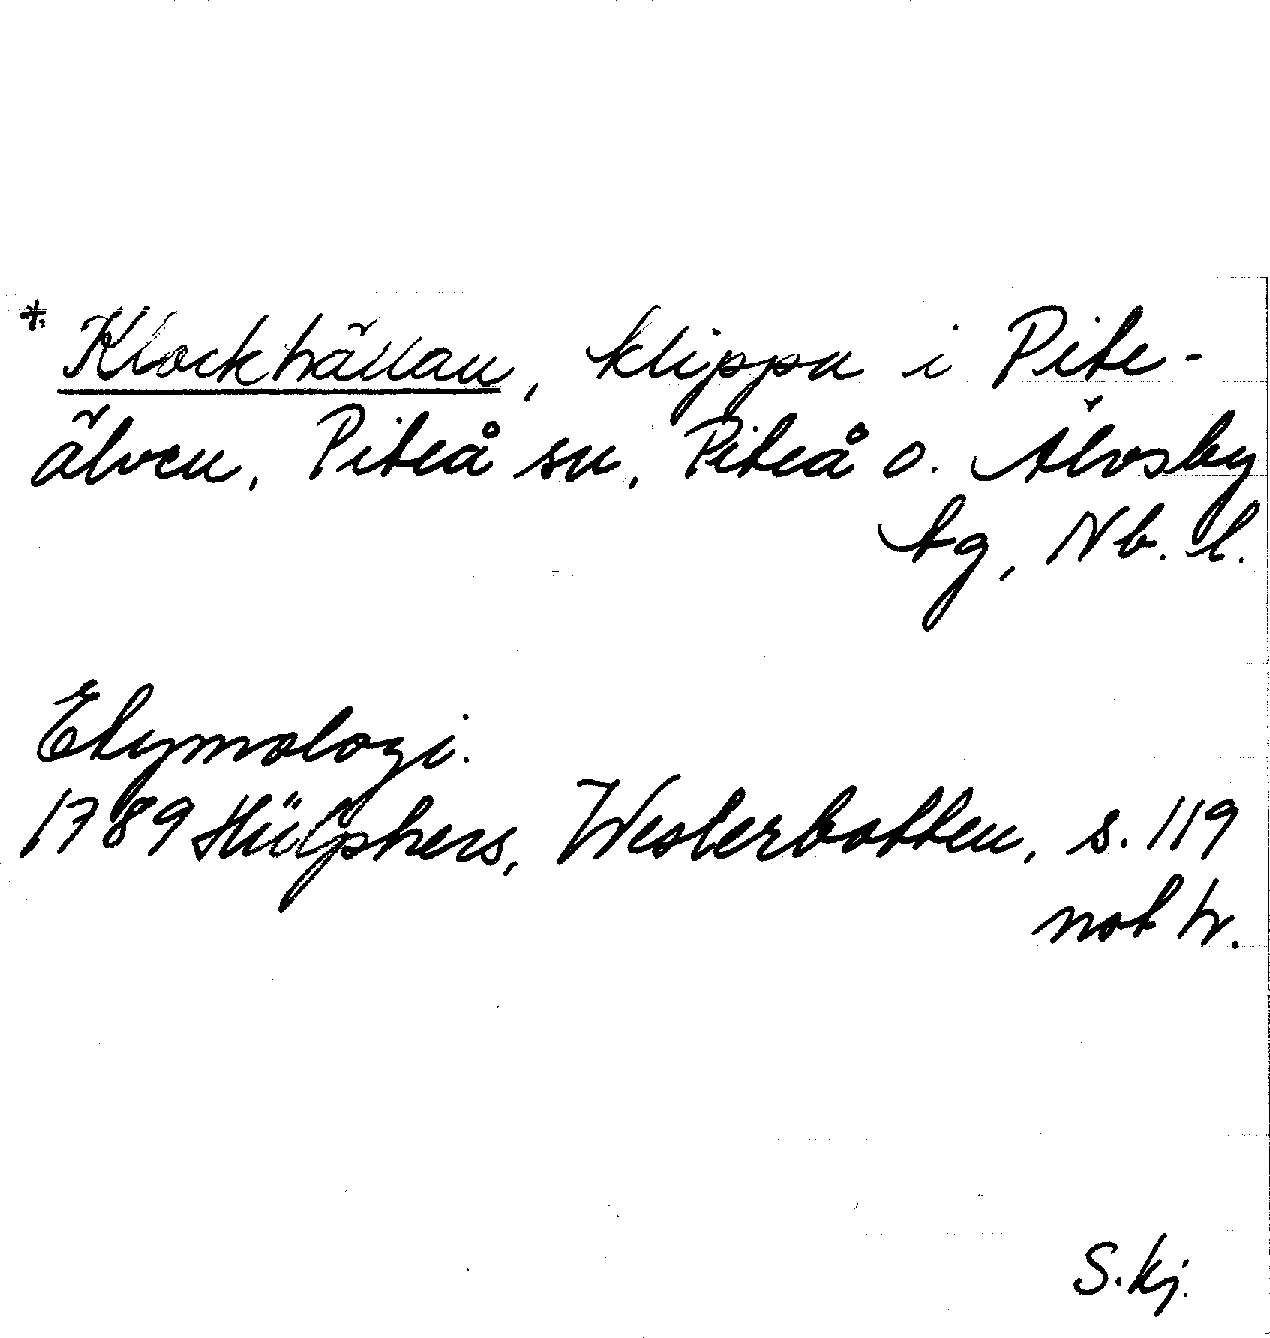 *. Klockhällan, klippa i Pite-
älven, Piteå sn, Piteå o. Älvsby
tg, Nb. l.
Etymologi.
1789 Hülphers, Westerbotten, s. 119
not h.
S. Kj.